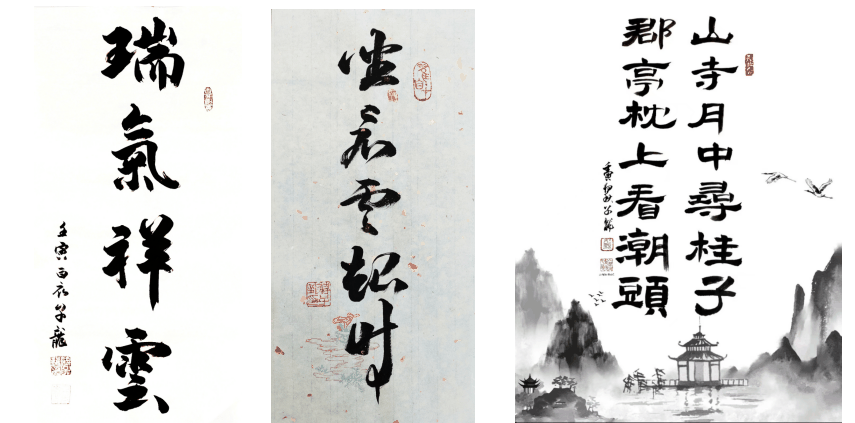 瑞氣祥雲
壬寅白衣子龍
坐看雲起時
山寺月中尋桂子
郡亭枕上看潮頭